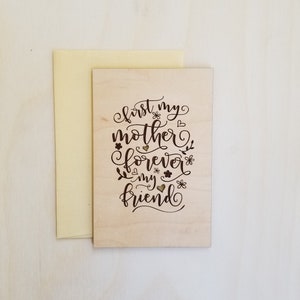 first my
mother
forever
my
friend